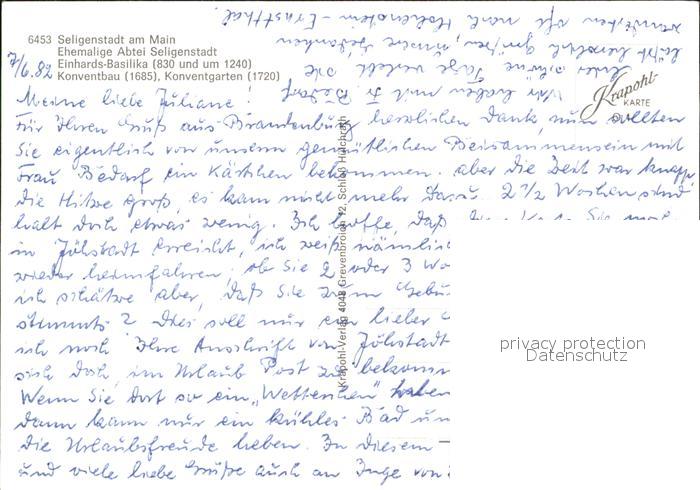 6453 Seligenstadt am Main
Ehemalige Abtei Seligenstadt
Einhards-Basilika (830 und um 1240)
Konventbau (1685), Konventgarten (1720)
7/6. 82
Krapohl-
KARTE
Meine liebe Juliane!
Für Ihren Gruß aus Brandenburg herzlichen Dank, nun sollten
Sie eigentlich von unserm gemütlichen Beisammensein mit
Frau Bedarf ein Kärtchen bekommen. aber die Zeit war knapp
die Hitze groß, es kam nicht mehr dazu. 2 1/2 Wochen sind
halt doch etwas wenig. Ich hoffe, daß
in Jöhstadt erreicht, ich weiß nämlic
wieder heimfahren, ob Sie 2 oder 3 Wo
ich schätze aber, daß Sie zum Gebu
stimmts? Dies soll nur ein lieber
ich noch Ihre Anschrift von Jöhstadt
sich doch, im Urlaub Post zu bekomm
Wenn Sie dort so ein "Wetterchen" haben
dann kann nur ein kühles Bad un
die Urlaubsfreude heben. In diesem
und viele liebe Grüße auch an Inge von
Wir haben mit Fr. Bedarf
schöne Tage verlebt. Sie
läßt herzlich grüßen, unsere Gedanken
wanderten oft nach Hohenstein-Ernstthal.
Krapohl-Verlag 4048 Grevenbroich 12, Schloß Hülchrath
privacy protection
Datenschutz